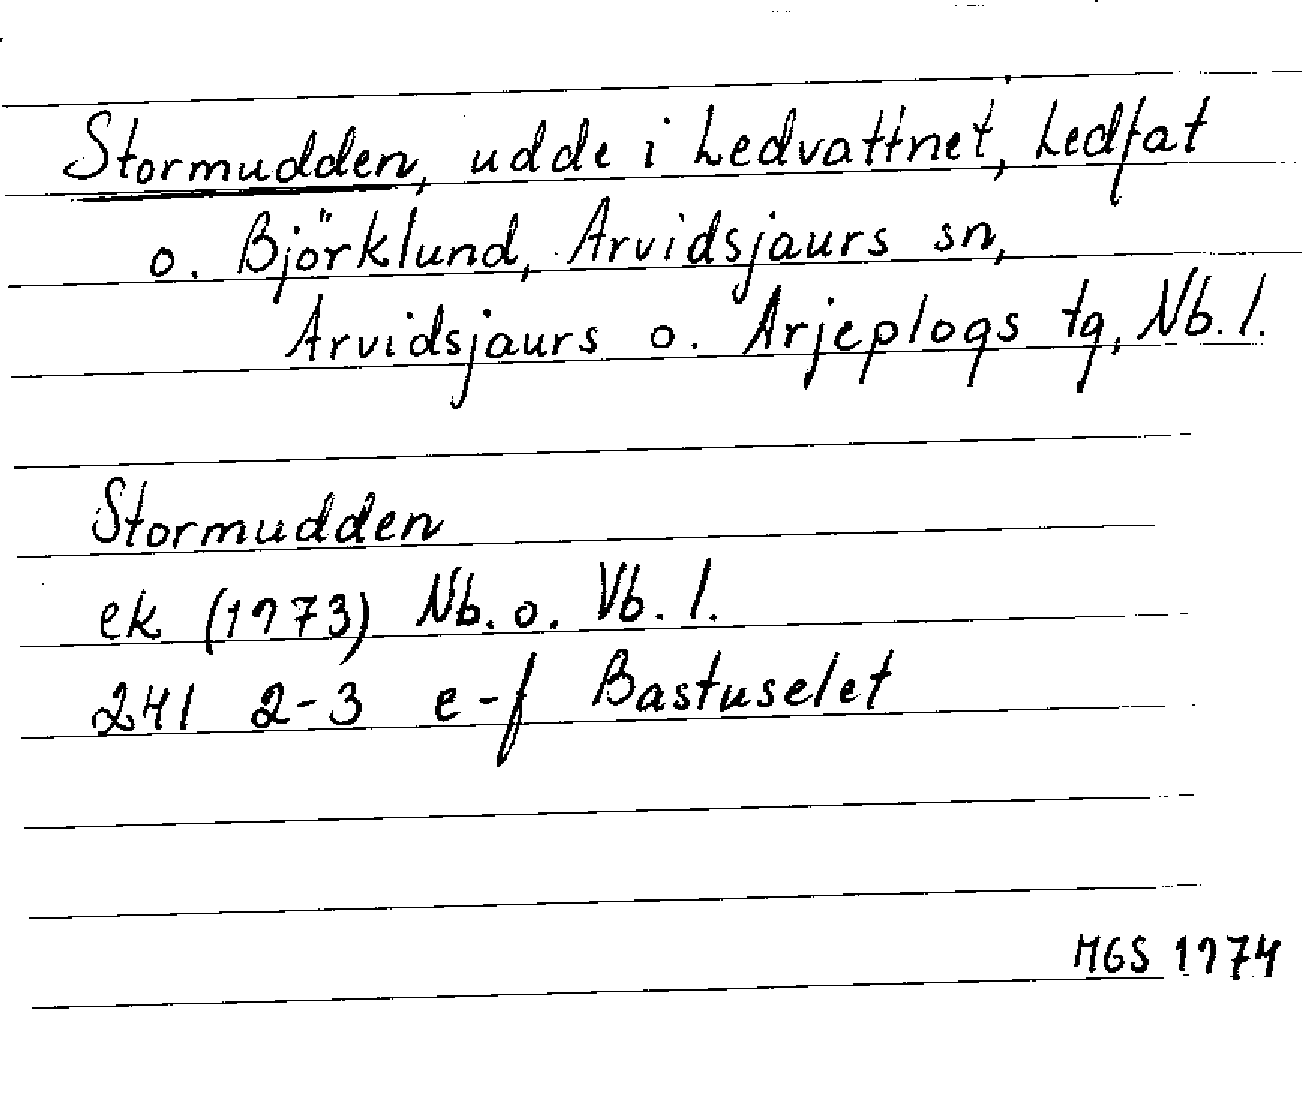 Stormudden, udde i Ledvattnet, Ledfat
o. Björklund, Arvidsjaurs sn,
Arvidsjaurs o. Arjeplogs tg, Nb. l.
Stormudden
ek (1973) Nb. o. Vb. l.
241 2-3 e-f Bastuselet
MGS 1974